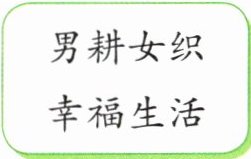 男耕女织
幸福生活